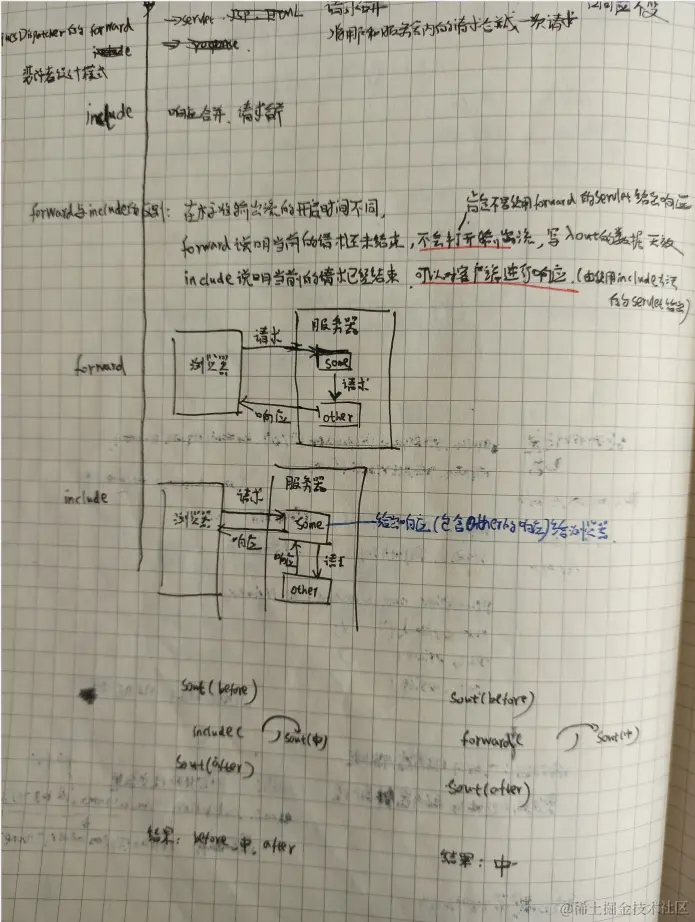 →servlet JSP、HTML
将用户和服务器内的请求合并成一次请求
Dispatcher的 forward
include
→ response
装饰者设计模式
include 响应合并、请求合并
forward与include的区别：在于标准输出流的开启时间不同，
肯定不会使用forward的servlet给出响应
forward说明当前的请求还未结束，不会打开输出流，写入out的数据无效
include说明当前的请求已经结束，可以对客户端进行响应。(由使用include方法
的servlet给出)
forward
浏览器
请求
服务器
some
请求
响应
other
include
浏览器
请求
服务器
some
给出响应(包含other的响应)给浏览器
响应
响应
请求
other
sout(before)
include( sout(中)
sout(after)
结果：before、中、after
sout(before)
forward( sout(中)
sout(after)
结果：中
@稀土掘金技术社区